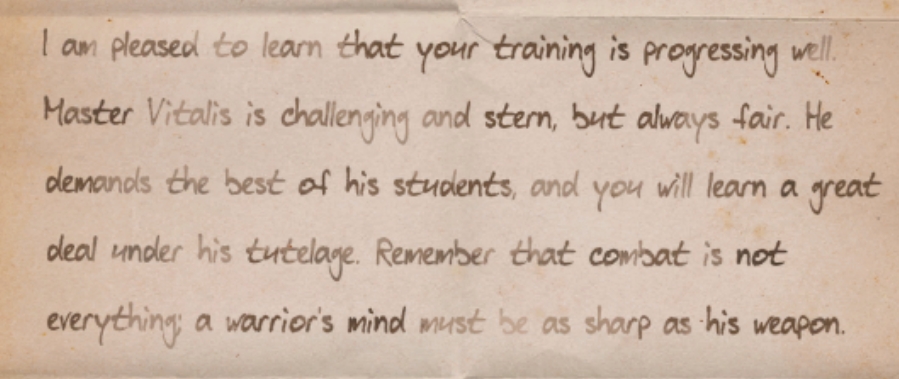 I am pleased to learn that your training is progressing well.
Master Vitalis is challenging and stern, but always fair. He
demands the best of his students, and you will learn a great
deal under his tutelage. Remember that combat is not
everything; a warrior's mind must be as sharp as his weapon.